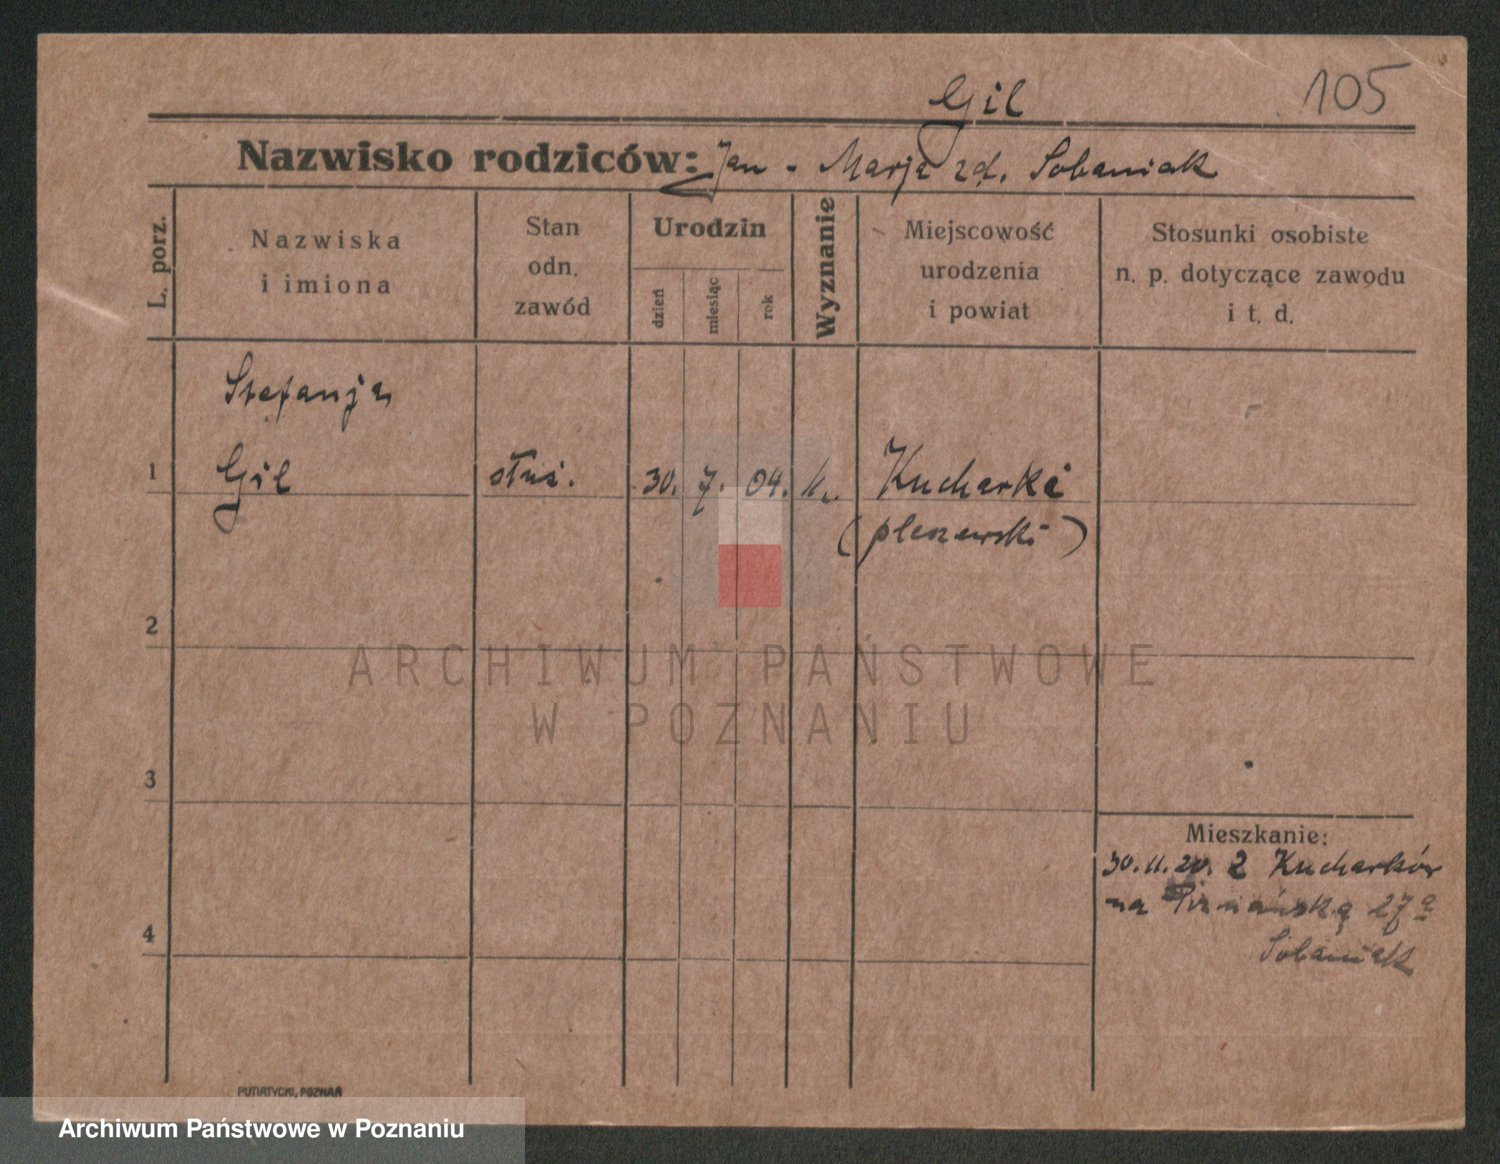 105
Gil
Nazwisko rodziców: Jan - Marja zd. Sobaniak
L. porz.
Nazwiska
i imiona
Stan
odn.
zawód
Urodzin
dzień
miesiąc
rok
Wyznanie
Miejscowość
urodzenia
i powiat
Stosunki osobiste
n. p. dotyczące zawodu
i t. d.
Stefanja
1 Gil służ. 30. 7. 04. k. Kucharki
(pleszewski)
2
ARCHIWUM PAŃSTWOWE
W POZNANIU
3
Mieszkanie:
30.11.20. z Kucharków
na 27a
4
Sobaniak
PUTIATYCKI, POZNAŃ
Archiwum Państwowe w Poznaniu